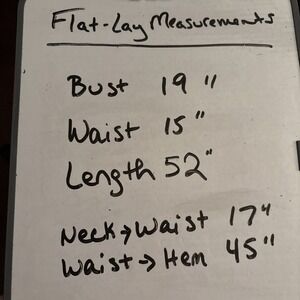 Flat-Lay Measurements
Bust 19"
Waist 15"
Length 52"
Neck→Waist 17"
Waist→Hem 45"